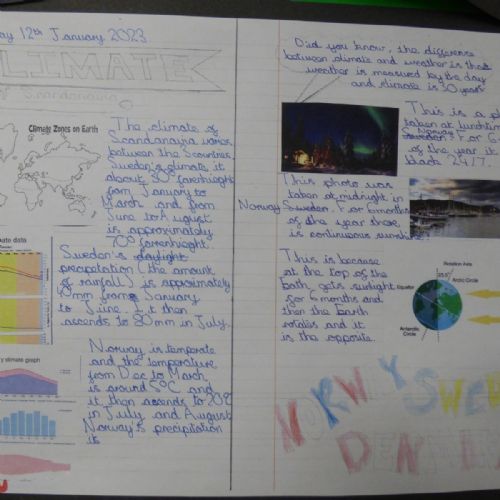 ay 12th January 2023
CLIMATE
of Scandanavia
Climate Zones on Earth
The climate of
Scandanavia varies
between the 3 countries.
Sweden's climate it
about 30° farenhieght
from January to
March and from
June to August
is approximately
70° farenhieght.
ate data
Sweden's daylight
precapetation (the amount
of rainfall) is approximately
40mm from January
to June. It then
ascends to 80mm in July.
y climate graph
Norway is temperate
and the temperature
from Dec to March
is around 5°C and
it then ascends to 20°C
in July and August
Norway's precipitation
is
Did you know, the difference
between climate and weather is that
weather is measured by the day
and climate is 30 years
This is a p
taken at lunchtim
Norway
Sweden. For 6
of the year it
black 24/7.
This photo was
taken at midnight in
Norway Sweden. For 6 months
of the year there
is continuous sunshine
This is because
at the top of the
Earth gets sunlight
for 6 months and
then the Earth
rotates and it
is the opposite.
Rotation Axis
23.5°
Arctic Circle
Equator
Antarctic
Circle
NORWAY SWED
DEN